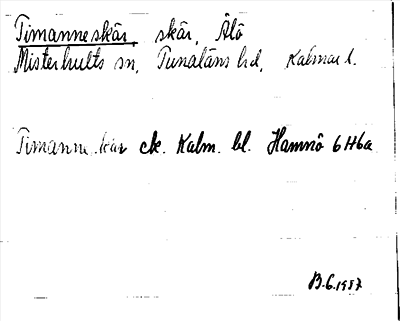 Timanneskär, skär, Älö
Misterhults sn, Tunaläns hd, Kalmar l.
Timanne kär ek. Kalm. bl. Hamnö 6H6a
B.G.1987